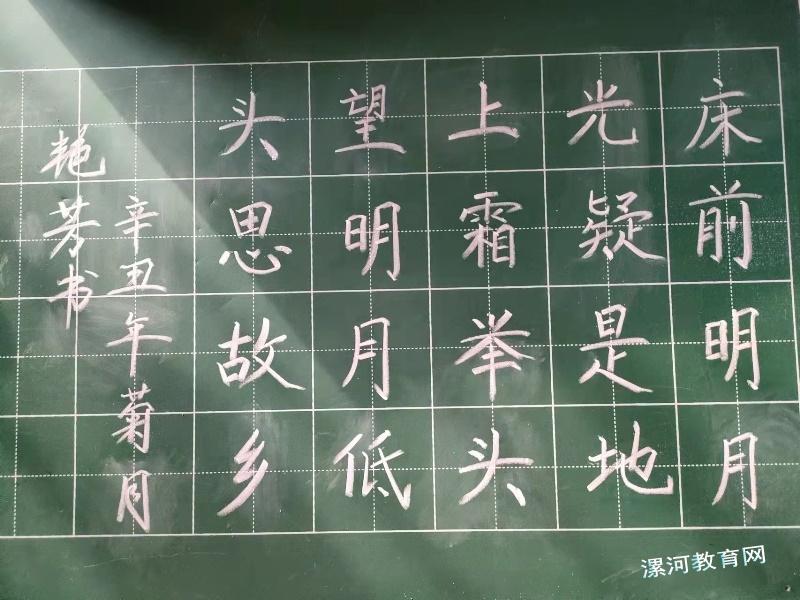 床前明月
光疑是地
上霜举头
望明月低
头思故乡
辛丑年菊月
艳芳书
漯河教育网